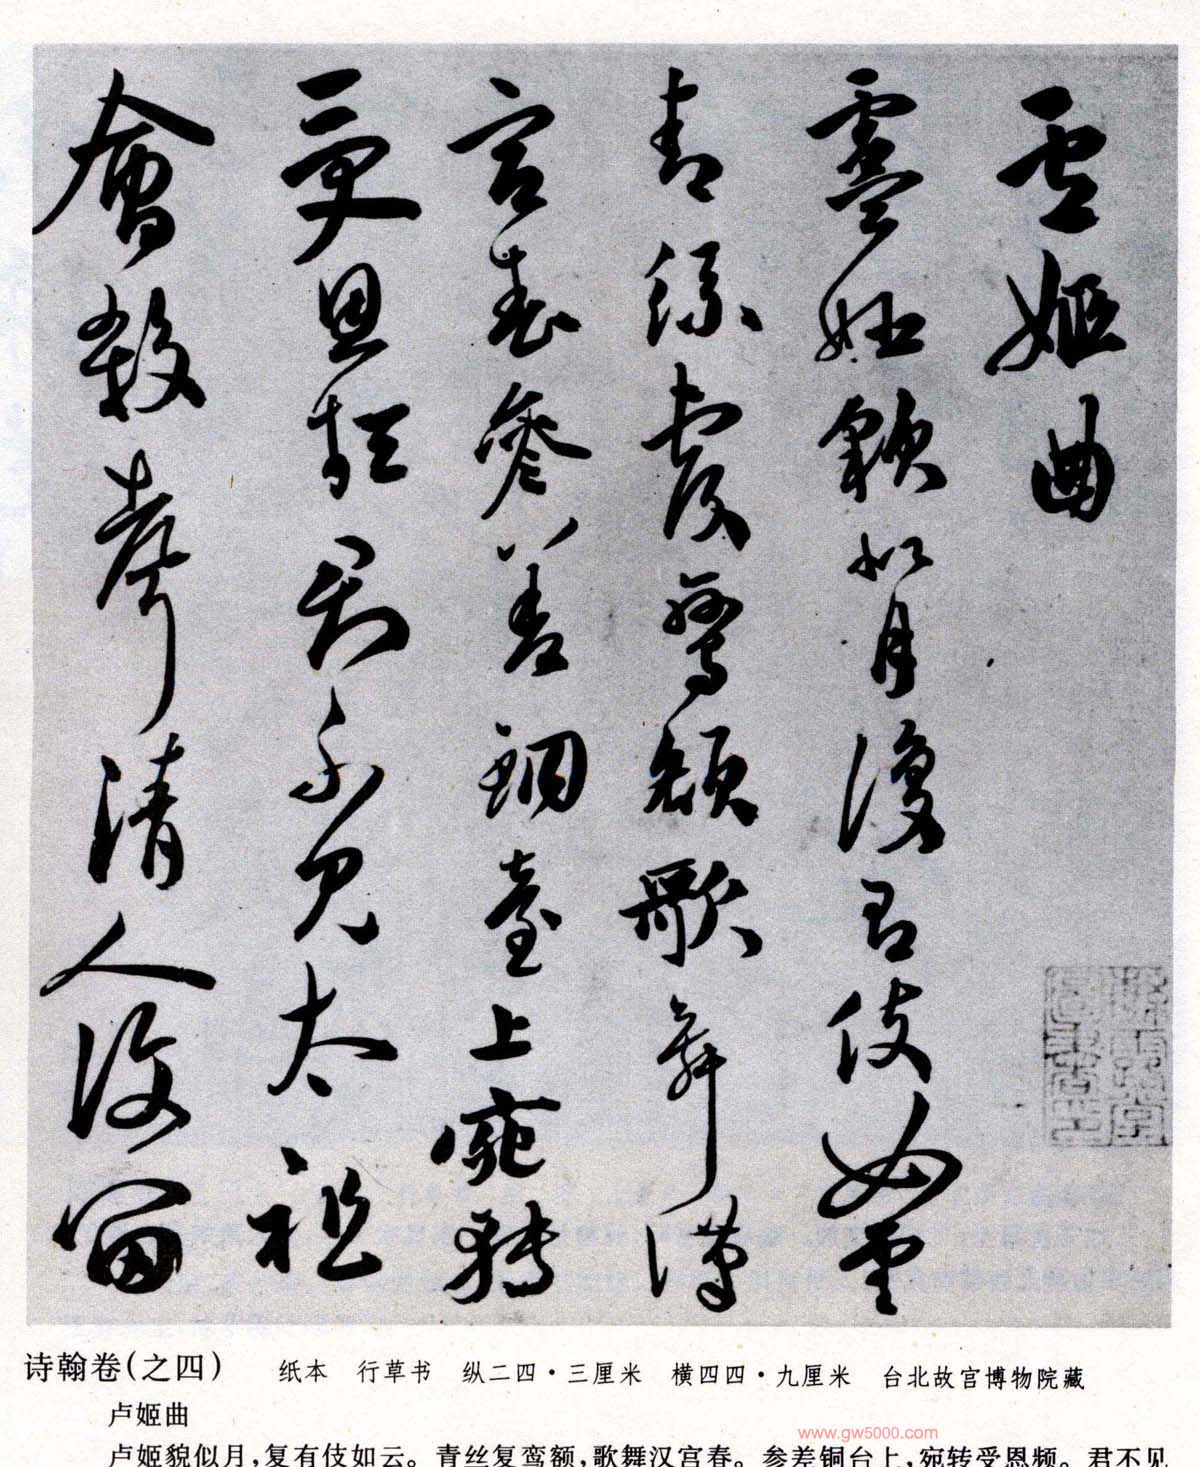 盧姬曲
盧姬貌似月復有伎如雲
青絲覆鸞額歌舞漢
宮春參差銅臺上宛轉
受恩頻君不見太祖
會數清人復
诗翰卷(之四) 纸本 行草书 纵二四·三厘米 横四四·九厘米 台北故宫博物院藏
卢姬曲
卢姬貌似月,复有伎如云。青丝复鸾额,歌舞汉宫春。参差铜台上,宛转受恩频。君不见
www.gw5000.com